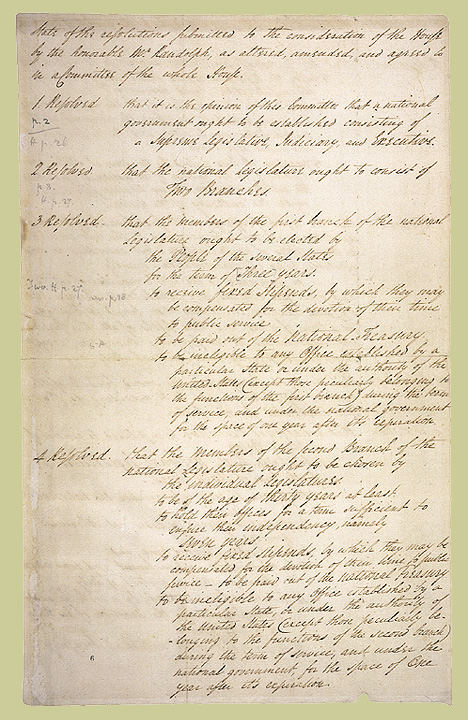 State of the resolutions submitted to the consideration of the House
by the honorable Mr. Randolph, as altered, amended, and agreed to
in a Committee of the whole House.
1 Resolved that it is the opinion of this Committee that a national
p. 2
government ought to be established consisting of
H p. 26
a Supreme Legislative, Judiciary, and Executive.
2 Resolved that the national Legislature ought to consist of
p. 3.
Two Branches.
H. p. 27.
3 Resolved. that the members of the first branch of the national
Legislature ought to be elected by
the People of the several States
for the term of Three years.
to receive fixed Stipends, by which they may
H p. 27
be compensated for the devotion of their time
to public service
to be paid out of the National Treasury.
to be ineligible to any Office established by a
particular State or under the authority of the
United States (except those peculiarly belonging to
the functions of the first branch) during the term
of service, and under the national government
for the space of one year after its expiration.
4 Resolved. that the Members of the second Branch of the
national Legislature ought to be chosen by
the individual Legislatures.
to be of the age of thirty years at least.
to hold their offices for a time sufficient to
ensure their independency, namely
seven years.
to receive fixed stipends, by which they may be
compensated for the devotion of their time to public
service - to be paid out of the National Treasury
to be ineligible to any Office established by a
particular State, or under the authority of
the United States (except those peculiarly be-
-longing to the functions of the second branch)
during the term of service, and under the
national government, for the space of One
year after its expiration.
6